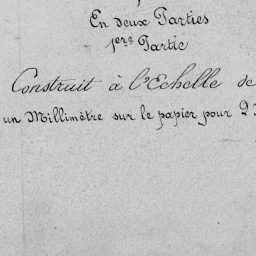 En deux Parties
1ère Partie
Construit à l'Echelle de
un Millimètre sur le papier pour 2